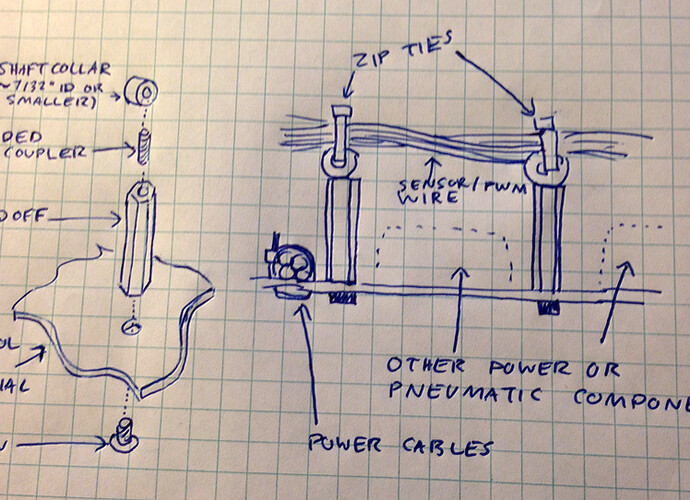 SHAFT COLLAR
~7/32" ID OR
SMALLER)
DED
COUPLER
DOFF
OL
IAL
ZIP TIES
SENSOR/PWM
WIRE
OTHER POWER OR
PNEUMATIC COMPONE
POWER CABLES